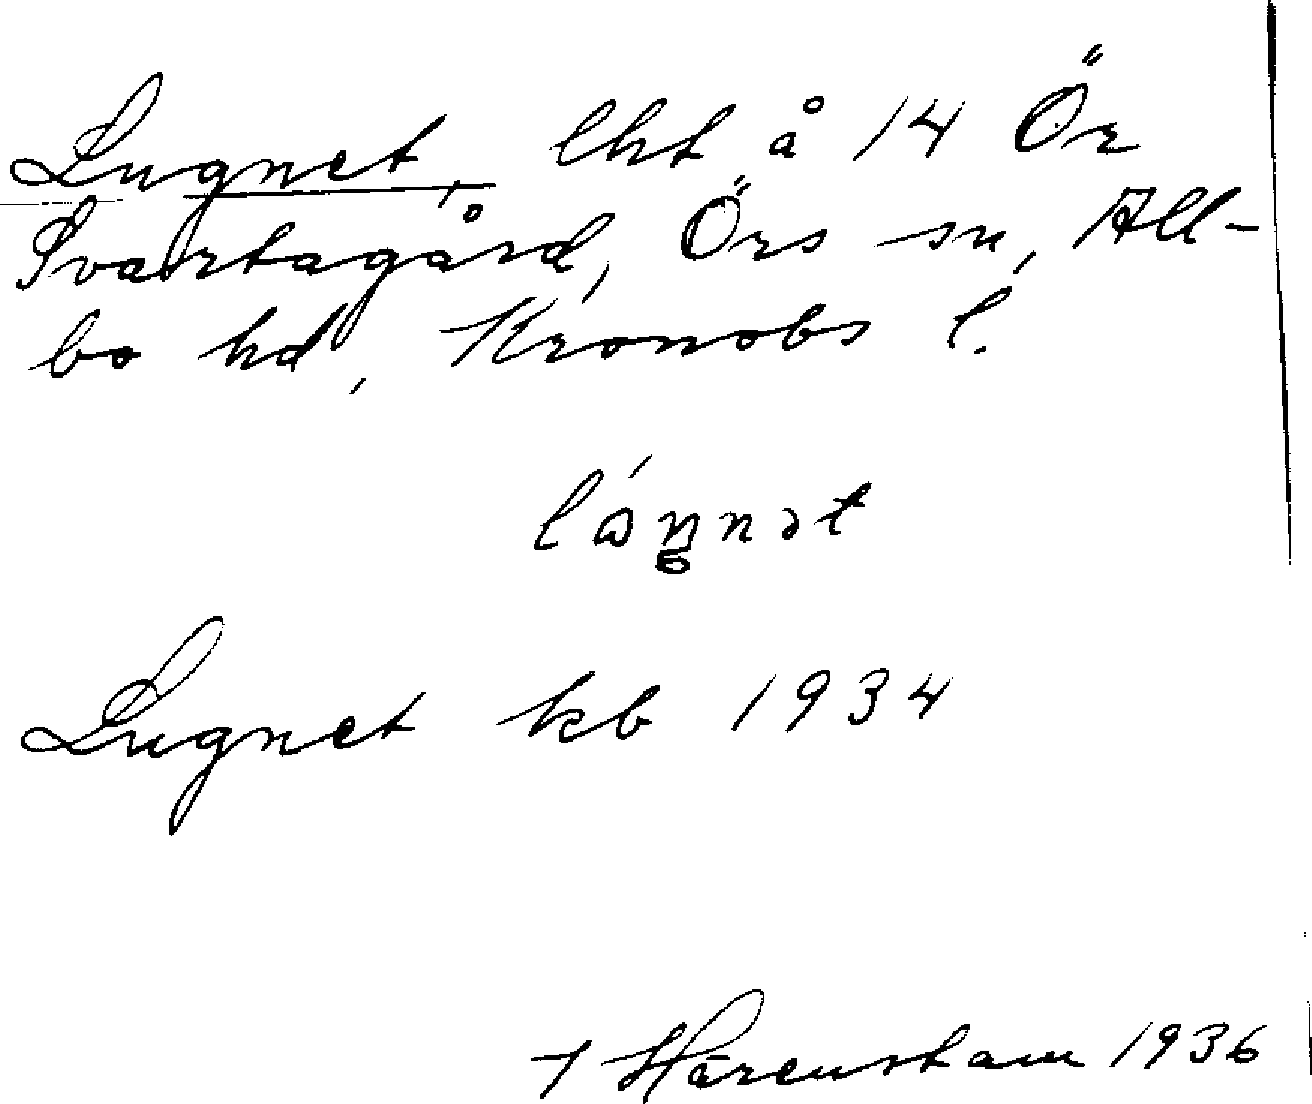 Lugnet, lht å 14 Ör
Svartagård, Örs sn, All-
bo hd, Kronobs l.
lúŋnət
Lugnet kb 1934
1936